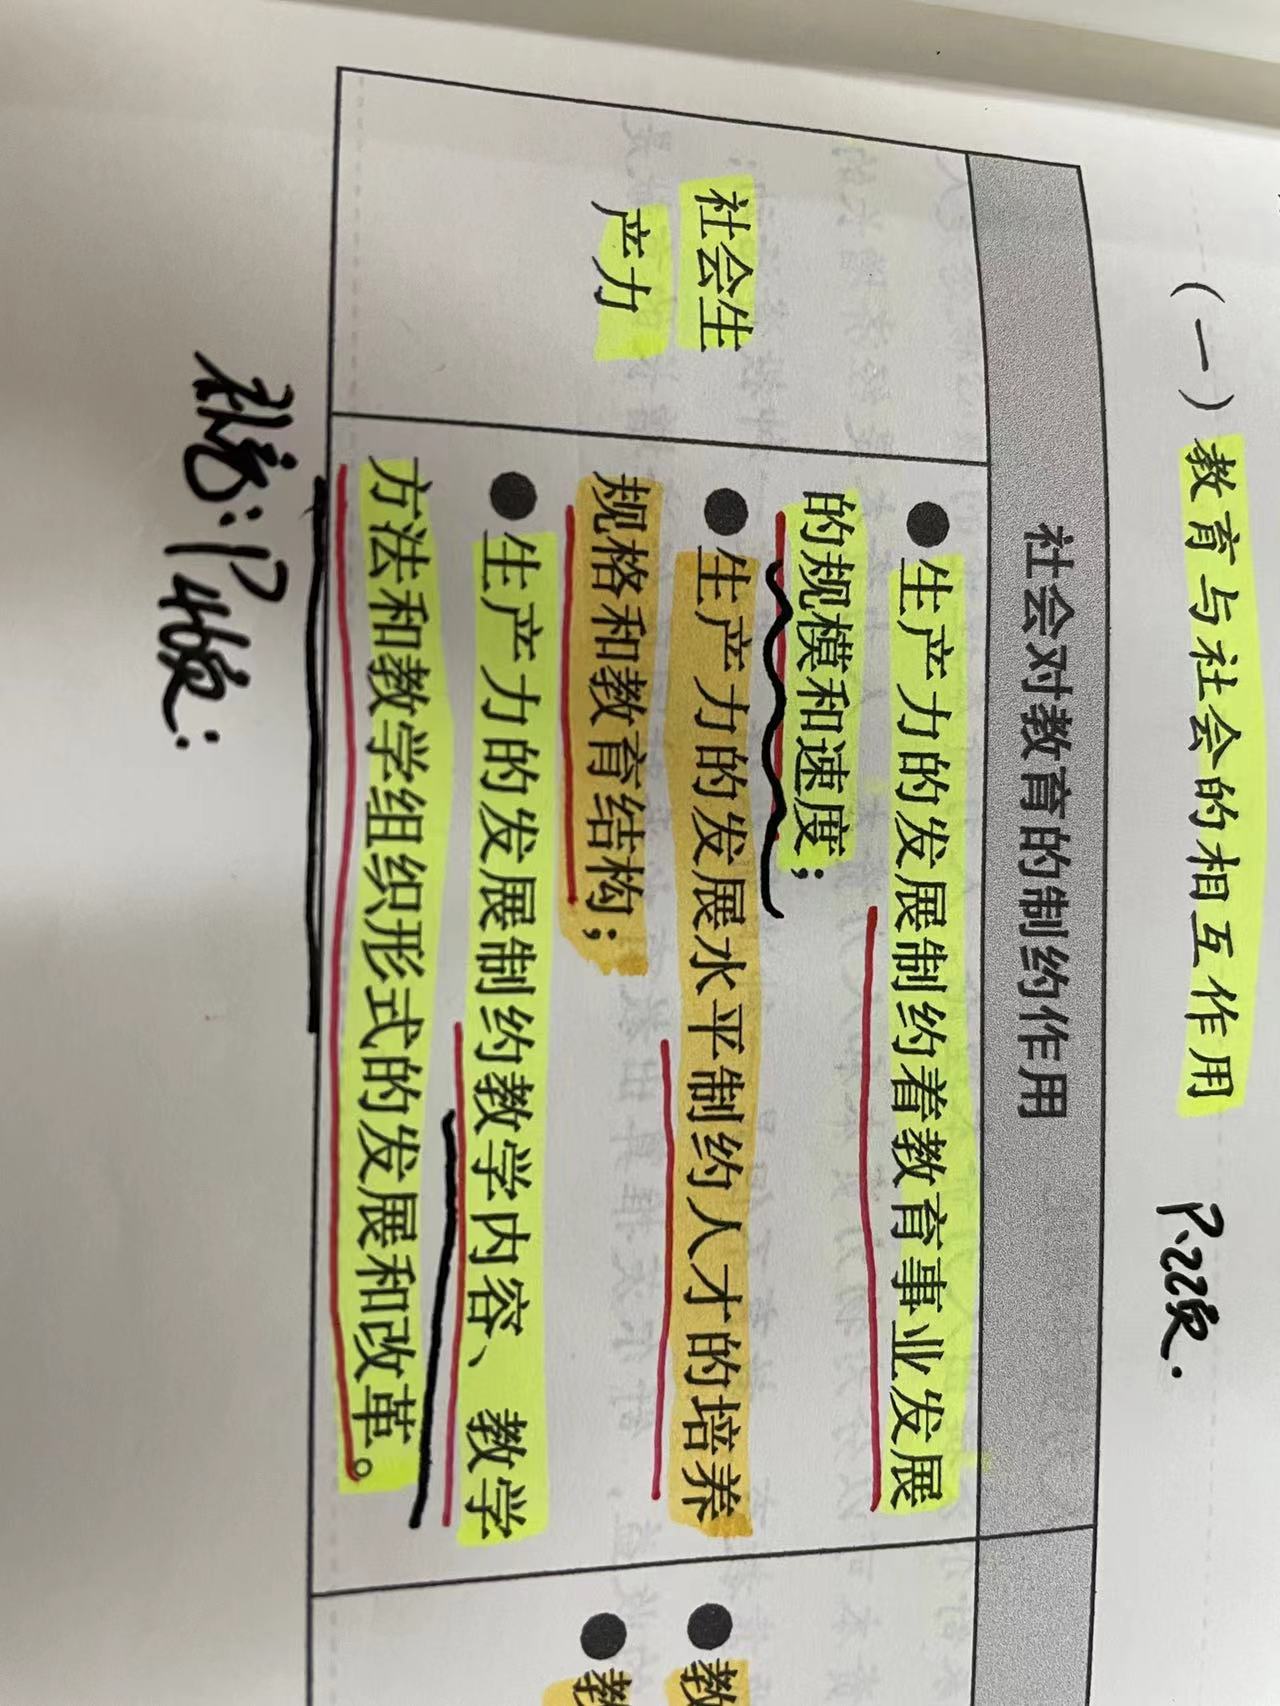 （一）教育与社会的相互作用 P.22页.
社会对教育的制约作用
社会生
产力
●生产力的发展制约着教育事业发展
的规模和速度；
●生产力的发展水平制约人才的培养
规格和教育结构；
●生产力的发展制约教学内容、教学
方法和教学组织形式的发展和改革。
●教
●教
P46页：